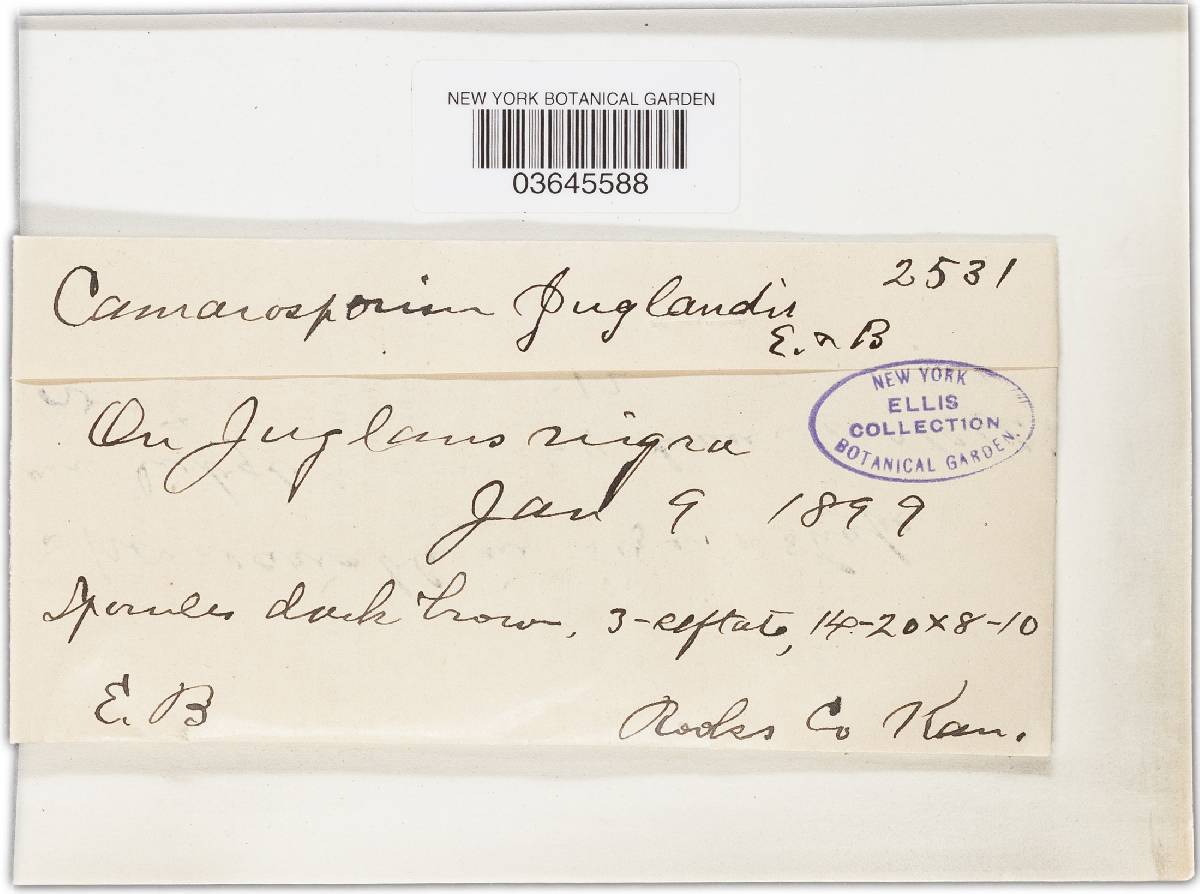 NEW YORK BOTANICAL GARDEN
03645588
2531
Camarosporium Juglandis
E. & B
NEW YORK
ELLIS
COLLECTION
BOTANICAL GARDEN.
On Juglans nigra
Jan 9 1899
Sporules dark brown, 3-septate, 14-20×8-10
E. B
Rooks Co Kan.